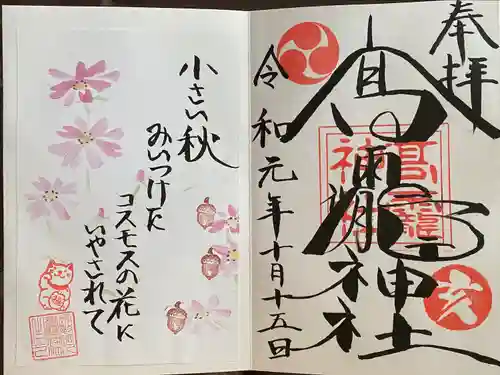 奉拝
高龗神社
亥
令和元年十月十五日
小さい秋
みいつけた
コスモスの花に
いやされて